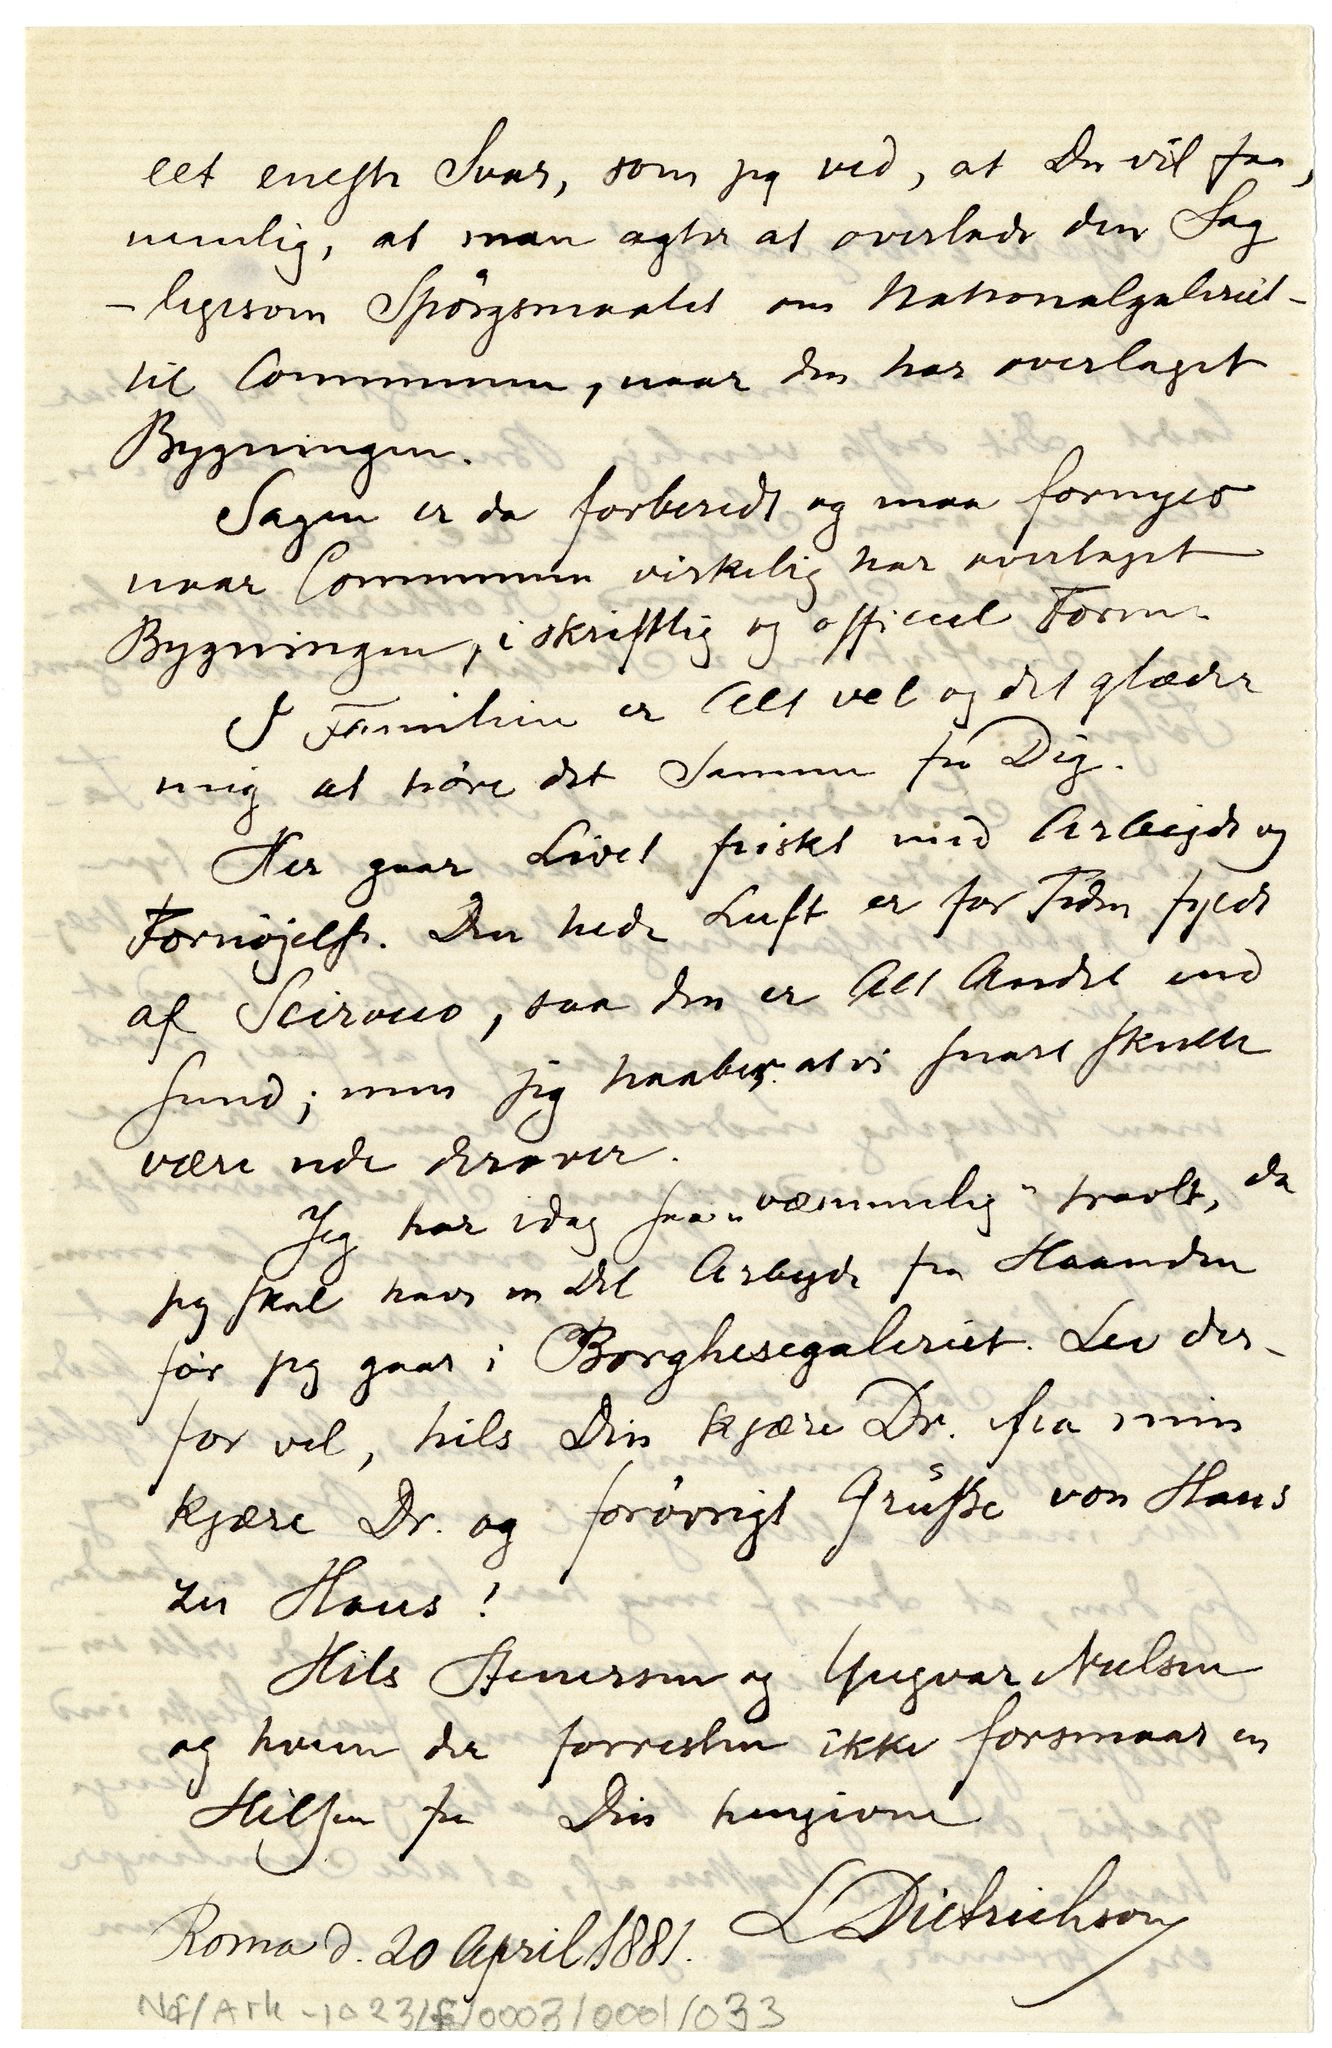 eet eneste Svar, som jeg ved, at Du vil faa,
nemlig, at man agter at overlade den Sag
– ligesom Spörgsmaalet om Nationalgaleriet –
til Communen, naar den har overtaget
Bygningen.
Sagen er da forberedt og maa fornyes
naar Communen virkelig har overtaget
Bygningen, i skriftlig og officiel Form.
I Familien er Alt vel og det glæder
mig at höre det Samme fra Dig.
Her gaar Livet friskt med Arbejde og
Fornöjelse. Den hede Luft er for Tiden fyldt
af Scirocco, saa den er Alt Andet end
sund; men jeg haaber at vi snart skulle
være ude derover.
Jeg har idag saa "væmmelig" travlt, da
jeg skal have en Del Arbejde fra Haanden
för jeg gaar i Borghesegaleriet. Lev der-
for vel, hils Din kjære Dr. fra min
kjære Dr. og forövrigt Grüsse von Haus
zu Haus!
Hils Stenersen og Yngvar Nielsen
og hvem der forresten ikke forsmaar en
Hilsen fra Din hengivne
L Dietrichson
Roma d. 20 April 1881.
NF/Ark - 1023/F/0003/0001/033